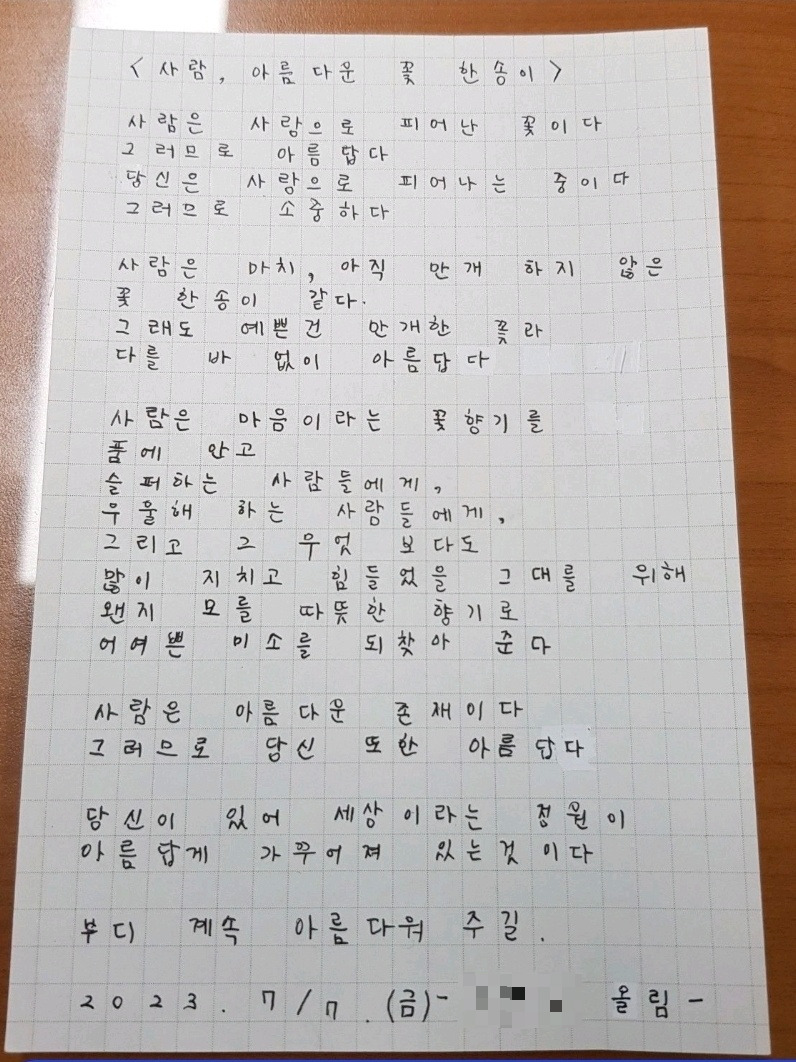 <사람, 아름다운 꽃 한송이>
사람은 사랑으로 피어난 꽃이다
그러므로 아름답다
당신은 사랑으로 피어나는 중이다
그러므로 소중하다
사람은 마치, 아직 만개 하지 않은
꽃 한송이 같다.
그래도 예쁜건 만개한 꽃과
다를 바 없이 아름답다
사람은 마음이라는 꽃향기를
품에 안고
슬퍼하는 사람들에게,
우울해 하는 사람들에게,
그리고 그 무엇 보다도
많이 지치고 힘들었을 그대를 위해
왠지 모를 따뜻한 향기로
어여쁜 미소를 되찾아 준다
사람은 아름다운 존재이다
그러므로 당신 또한 아름답다
당신이 있어 세상이라는 정원이
아름답게 가꾸어져 있는것이다
부디 계속 아름다워 주길.
2023. 7/7.(금)- 올림-